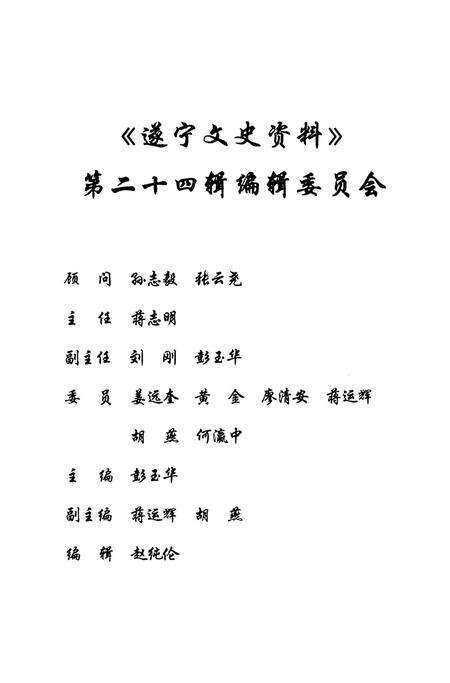 《遂宁文史资料》
第二十四辑编辑委员会
顾 问 孙志毅 张云尧
主 任 蒋志明
副主任 刘 刚 彭玉华
委 员 姜远奎 黄 金 廖清安 蒋运辉
胡 燕 何瀛中
主 编 彭玉华
副主编 蒋运辉 胡 燕
编 辑 赵纯伦